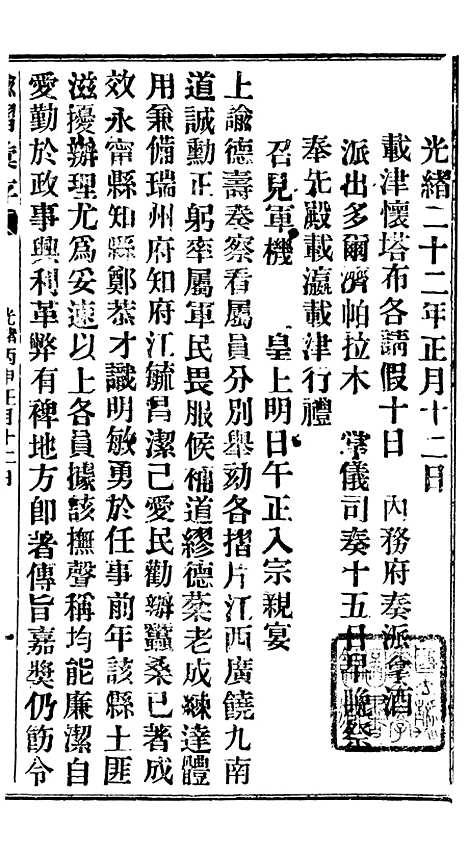 光緒二十二年正月十二日
載津懷塔布各請假十日　內務府奏派拿酒
派出多爾濟帕拉木　掌儀司奏十五日早晚祭
奉先殿載瀛載津行禮
召見軍機　皇上明日午正入宗親宴
上諭德壽奏察看屬員分別舉劾各摺片江西廣饒九南
道誠勳正躬率屬軍民畏服候補道繆德棻老成練達體
用兼備瑞州府知府江毓昌潔己愛民勸辦蠶桑已著成
效永甯縣知縣鄭恭才識明敏勇於任事前年該縣土匪
滋擾辦理尤為妥速以上各員據該撫聲稱均能廉潔自
愛勤於政事興利革弊有裨地方即著傳旨嘉奬仍飭令
諭摺彙存
光緒丙申正月十二日